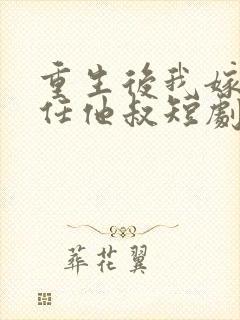 重生後我嫁
任他叔短劇
葬花翼